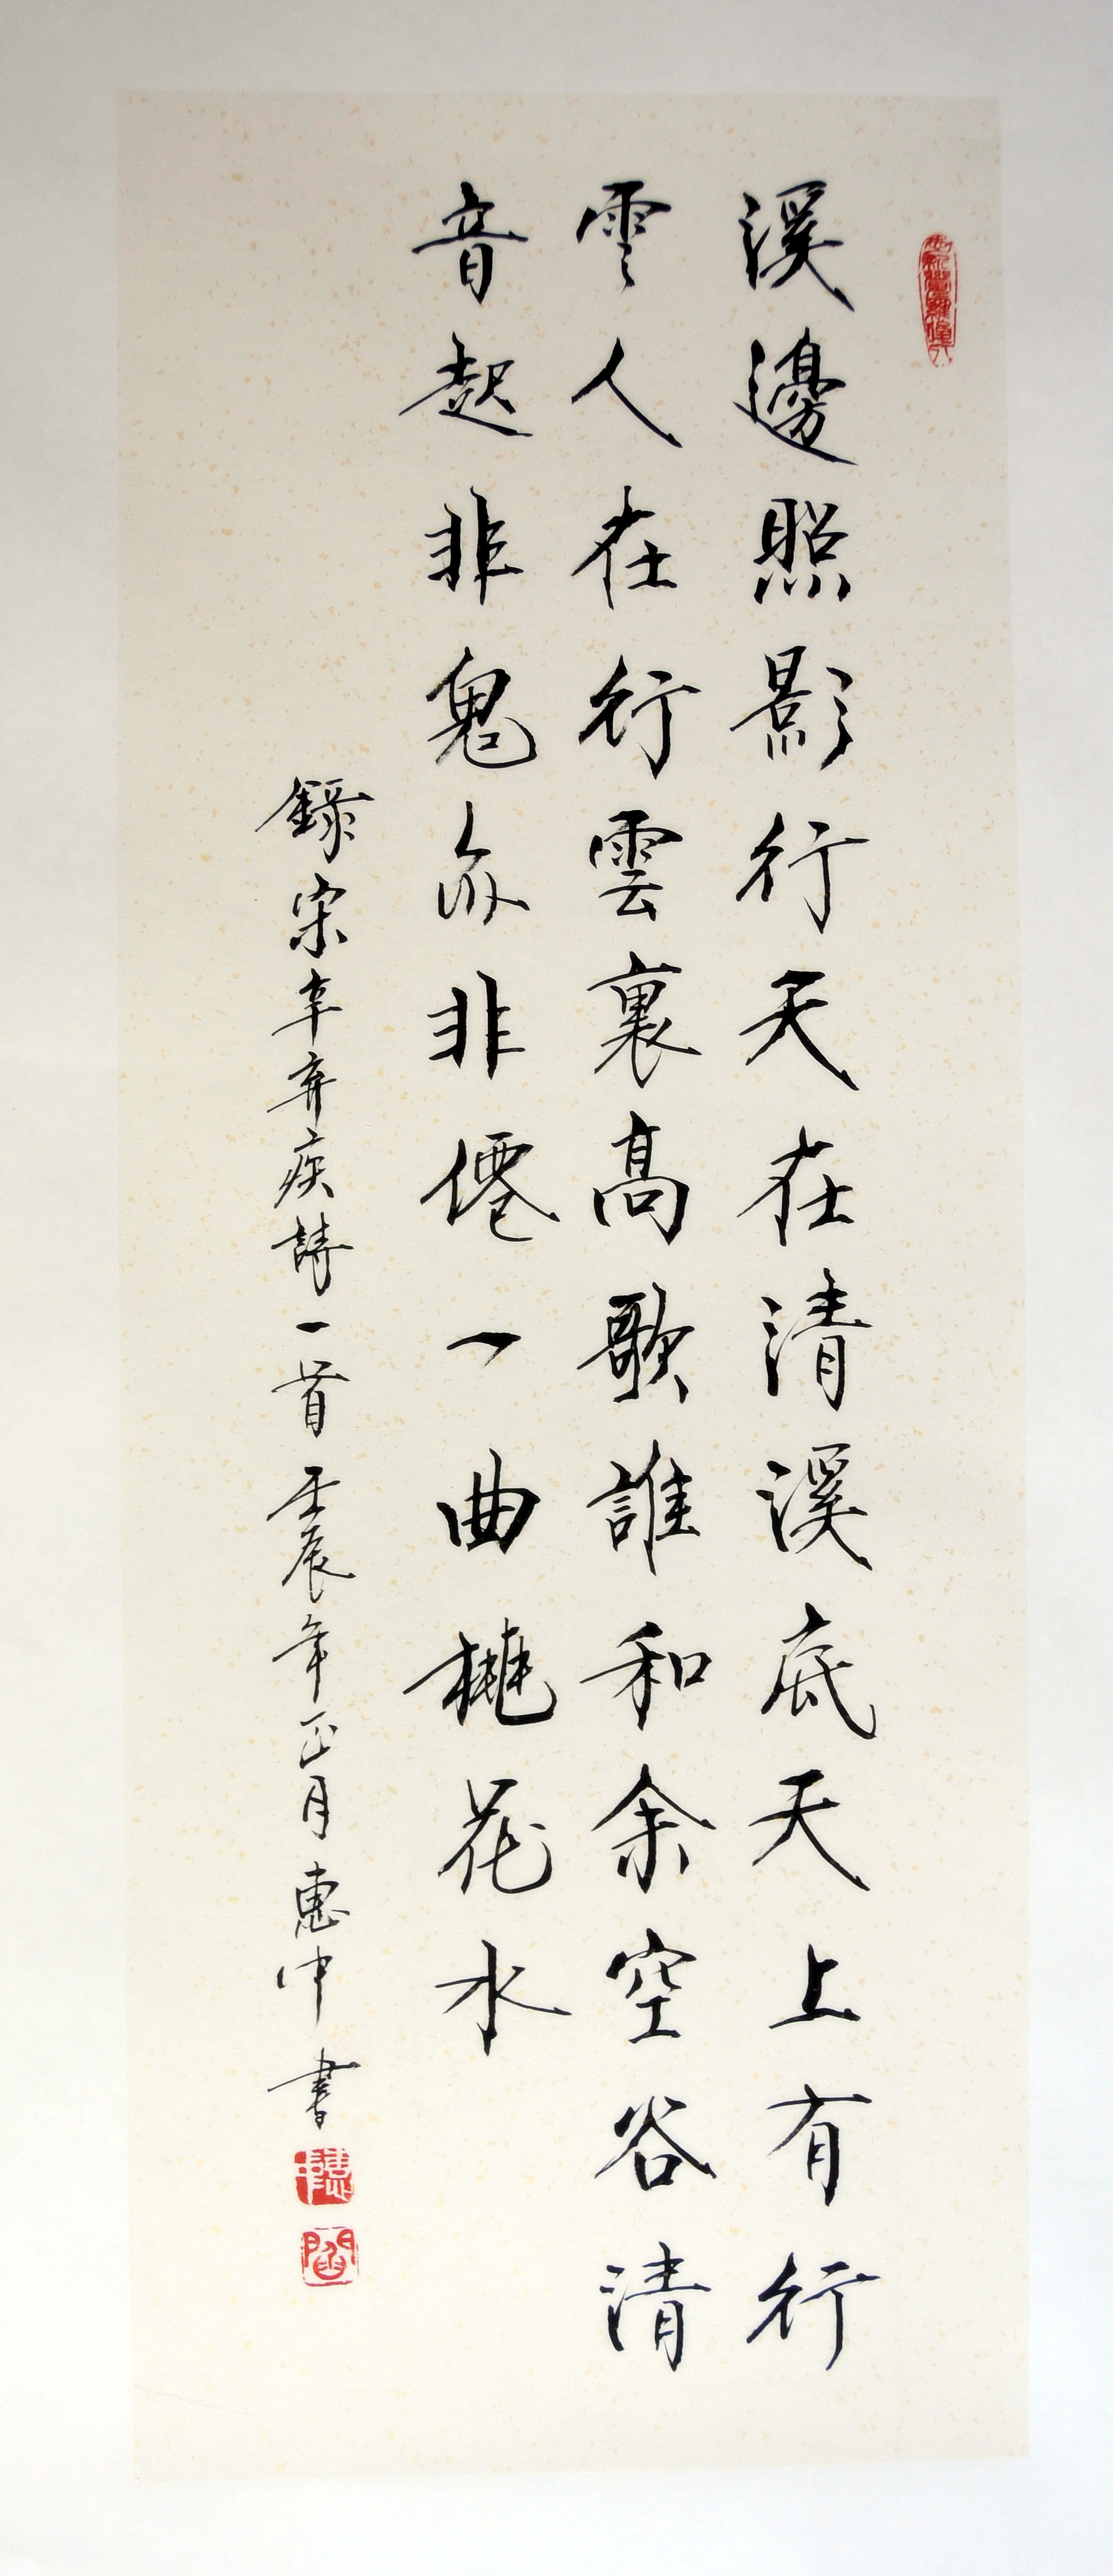 溪邊照影行天在清溪底天上有行
雲人在行雲裏高歌誰和余空谷清
音起非鬼亦非僊一曲桃花水
錄宋辛弃疾詩一首壬辰年正月惠中書